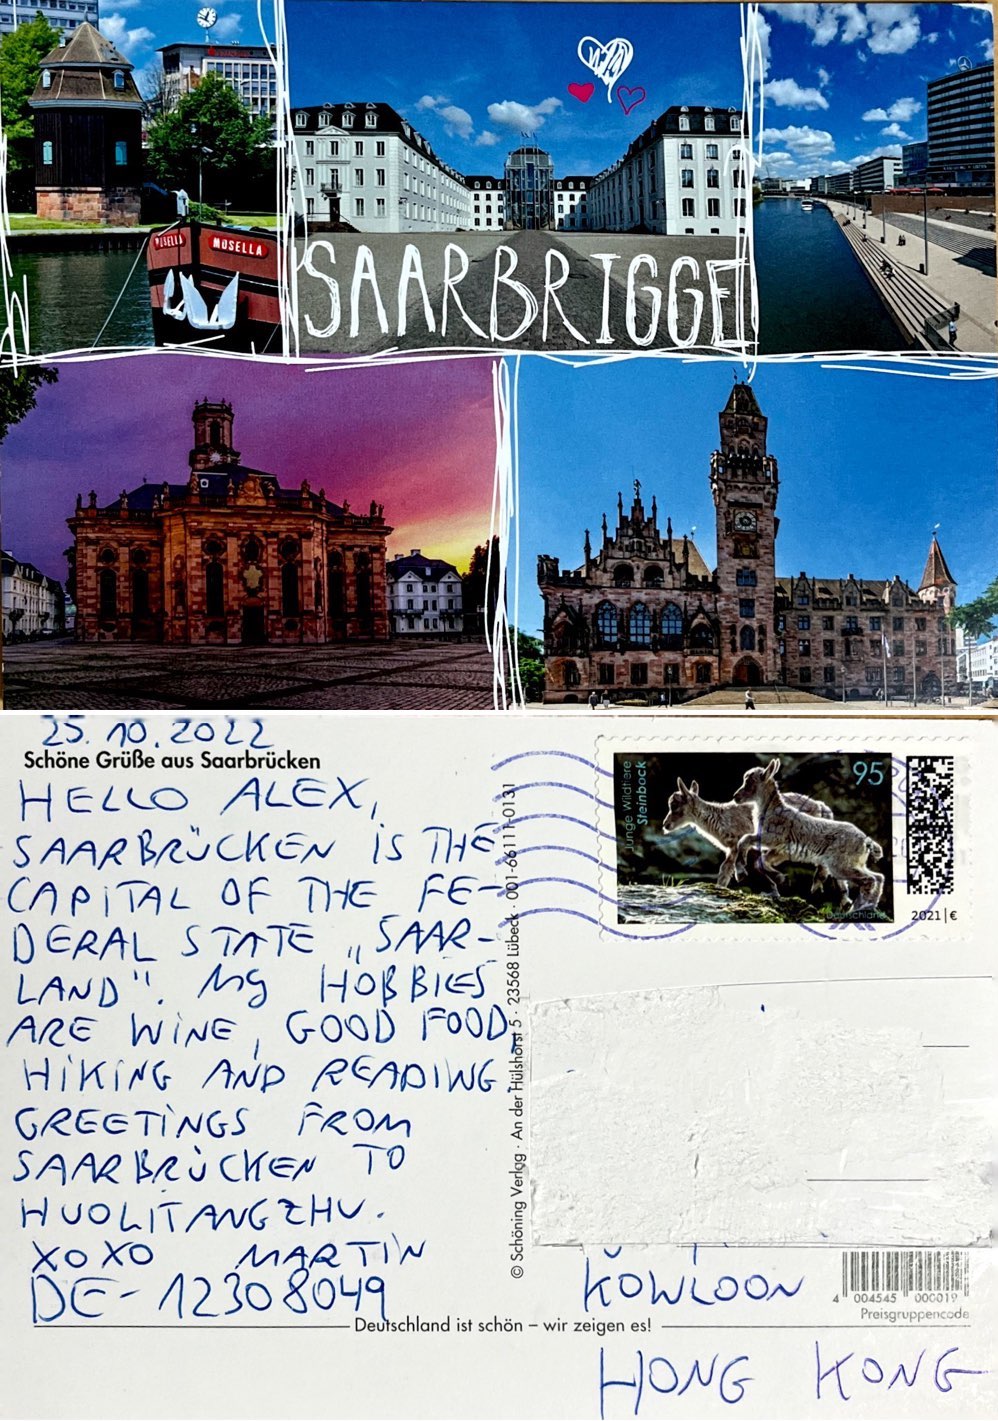 MOSELLA
MOSELLA
SAARBRIGGE
25.10.2022
Schöne Grüße aus Saarbrücken
HELLO ALEX,
SAARBRÜCKEN IS THE
CAPITAL OF THE FE-
DERAL STATE „SAAR-
LAND". MY HOBBIES
ARE WINE, GOOD FOOD,
HIKING AND READING.
GREETINGS FROM
SAARBRÜCKEN TO
HUOLITANGZHU.
XOXO MARTIN
DE-12308049
© Schöning Verlag · An der Hülshorst 5 · 23568 Lübeck · 001-66111-0131
Junge Wildtiere
Steinbock
95
Deutschland
2021 | €
KOWLOON
HONG KONG
4 004545 000019
Preisgruppencode
Deutschland ist schön – wir zeigen es!